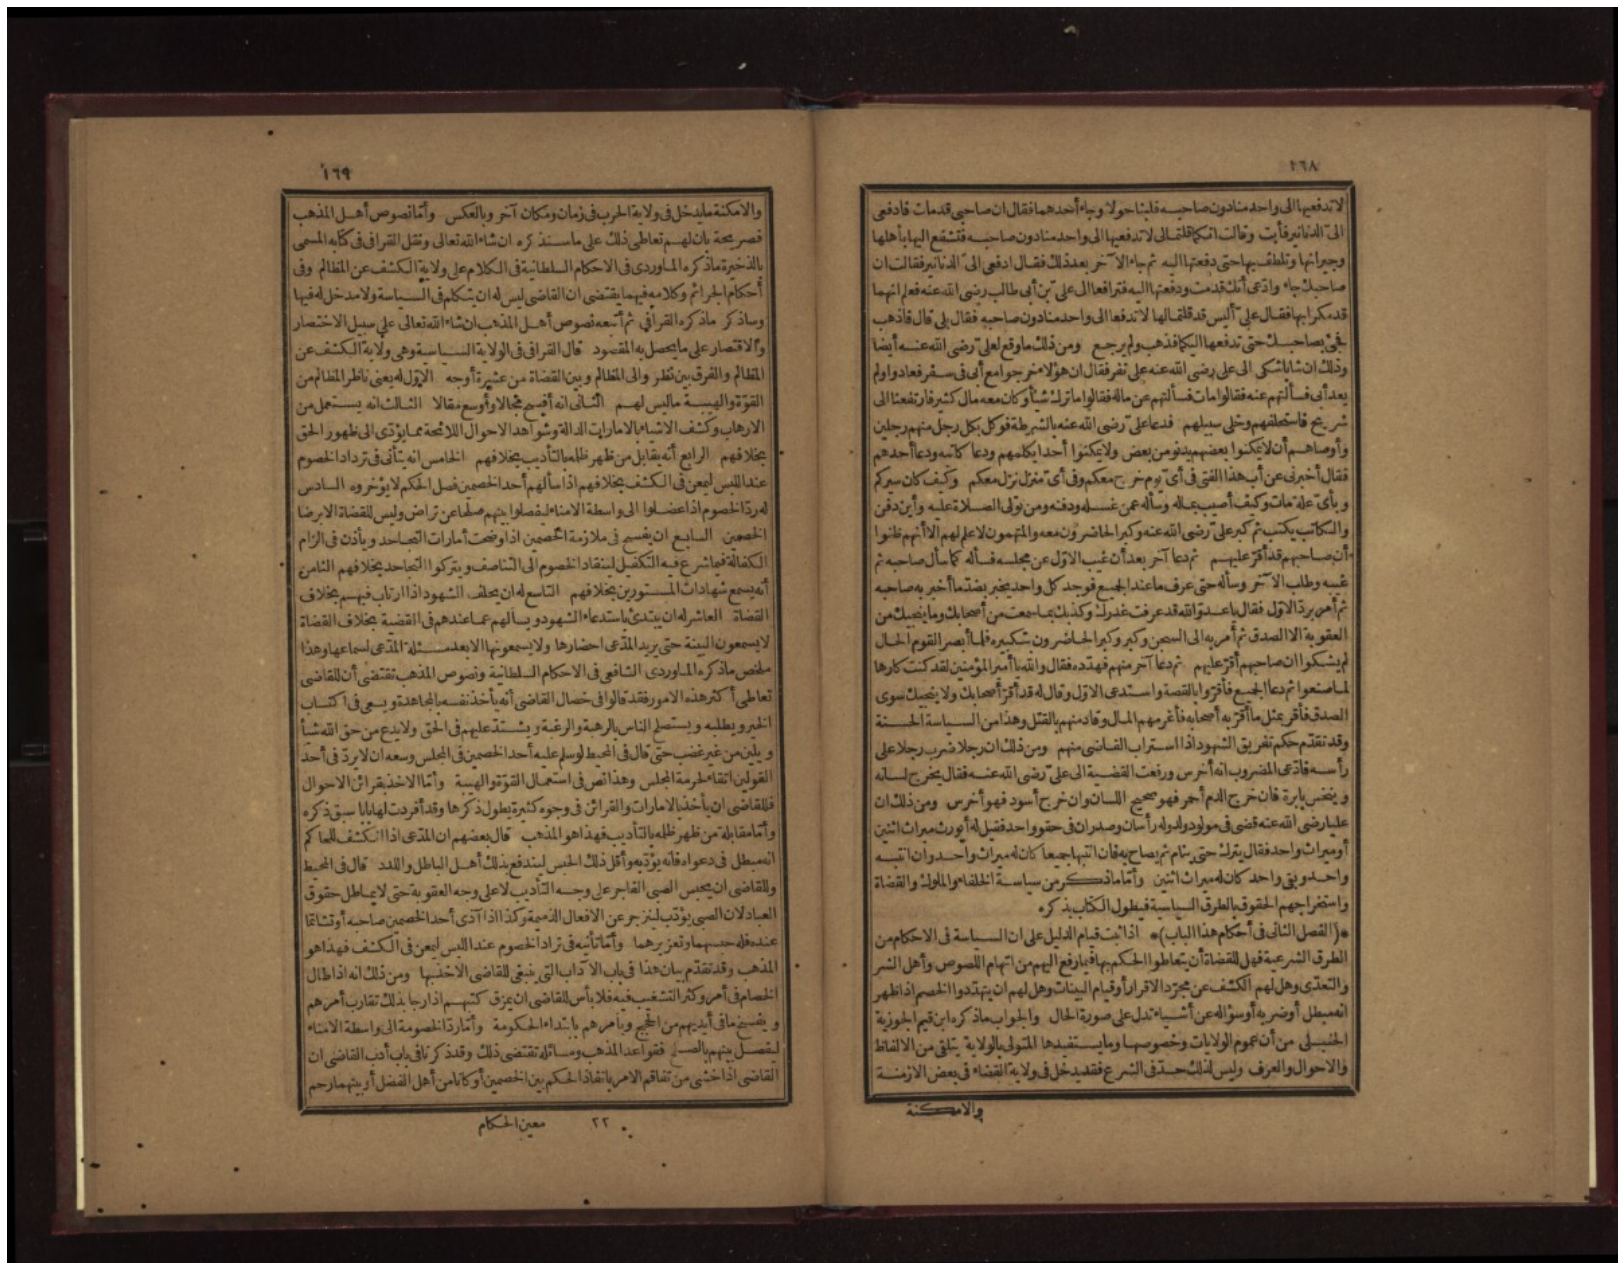 ١٦٨
لا تدفعيها الى واحد منا دون صاحبه فلبثا حولا وجاء أحدهما فقال ان صاحبى قد مات فادفعى
الىّ الدنانير فأبت وقالت انكما قلتما لى لا تدفعيها الى واحد منا دون صاحبه فتشفع اليها بأهلها
وجيرانها وتلطف بها حتى دفعتها اليه ثم جاء الآخر بعد ذلك فقال ادفعى الىّ الدنانير فقالت ان
صاحبك جاء وادّعى أنك قدمت ودفعتها اليه فترافعا الى علىّ بن أبى طالب رضى الله عنه فعلم انهما
قد مكرا بها فقال علىّ أليس قد قلتما لها لا تدفعا الى واحد منا دون صاحبه فقال بلى قال فاذهب
فجئ بصاحبك حتى تدفعها اليكما فذهب ولم يرجع ومن ذلك ما وقع لعلىّ رضى الله عنه أيضا
وذلك ان شابا شكى الى على رضى الله عنه على نفر فقال ان هؤلاء خرجوا مع أبى فى سفر فعادوا ولم
يعد أبى فسألتهم عنه فقالوا مات فسألتهم عن ماله فقالوا ما ترك شيأ وكان معه مال كثير فارتفعنا الى
شريح فاستحلفهم وخلى سبيلهم فدعا علىّ رضى الله عنه بالشرطة فوكل بكل رجل منهم رجلين
وأوصاهم أن لا يمكنوا بعضهم يدنو من بعض ولا يمكنوا أحدا يكلمهم ودعا كاتبه ودعا أحدهم
فقال أخبرنى عن أب هذا الفتى فى أىّ يوم خرج معكم وفى أىّ منزل نزل معكم وكيف كان سيركم
وبأىّ علة مات وكيف أصيب بماله وسأله عمن غسله ودفنه ومن تولى الصلاة عليه وأين دفن
والكاتب يكتب ثم كبر علىّ رضى الله عنه وكبر الحاضرون معه والمتهمون لا علم لهم الا أنهم ظنوا
أن صاحبهم قد أقرّ عليهم ثم دعا آخر بعد أن غيب الاوّل عن مجلسه فسأله كما سأل صاحبه ثم
غيبه وطلب الآخر وسأله حتى عرف ما عند الجميع فوجد كل واحد يخبر بضدّ ما أخبر به صاحبه
ثم أمر بردّ الاوّل فقال يا عدوّ الله قد عرفت غدرك وكذبك بما سمعت من أصحابك وما ينجيك من
العقوبة الا الصدق ثم أمر به الى السجن وكبر وكبر الحاضرون تكبيره فلما أبصر القوم الحال
لم يشكوا ان صاحبهم أقرّ عليهم ثم دعا آخر منهم فهدّده فقال والله يا أمير المؤمنين لقد كنت كارها
لما صنعوا ثم دعا الجميع فأقرّوا بالقصة واستدعى الاوّل وقال له قد أقرّ أصحابك ولا ينجيك سوى
الصدق فأقر بمثل ما أقرّ به أصحابه فأغرمهم المال وقاد منهم بالقتل وهذا من السياسة الحسنة
وقد تقدّم حكم تفريق الشهود اذا استراب القاضى منهم ومن ذلك ان رجلا ضرب رجلا على
رأسه فادّعى المضروب انه أخرس ورفعت القضية الى علىّ رضى الله عنه فقال يخرج لسانه
وينخس بابرة فان خرج الدم أحمر فهو صحيح اللسان وان خرج أسود فهو أخرس ومن ذلك ان
عليا رضى الله عنه قضى فى مولود ولد وله رأسان وصدران فى حقو واحد فقيل له أيورث ميراث اثنين
أو ميراث واحد فقال يترك حتى ينام ثم يصاح به فان انتبها جميعا كان له ميراث واحد وان انتبه
واحد وبقى واحد كان له ميراث اثنين وأمّا ما ذكر من سياسة الخلفاء والملوك والقضاة
واستخراجهم الحقوق بالطرق السياسية فيطول الكتاب بذكره
*(الفصل الثانى فى أحكام هذا الباب)* اذا ثبت قيام الدليل على ان السياسة فى الاحكام من
الطرق الشرعية فهل للقضاة أن يتعاطوا الحكم بها فيما رفع اليهم من اتهام اللصوص وأهل الشر
والتعدّى وهل لهم الكشف عن مجرّد الاقرار أو قيام البينات وهل لهم ان يتهدّدوا الخصم اذا ظهر
انه مبطل أو ضربه أو سؤاله عن أشياء تدل على صورة الحال والجواب ما ذكره ابن قيم الجوزية
الحنبلى من أن عموم الولايات وخصوصها وما يستفيدها المتولى بالولاية يتلقى من الالفاظ
والاحوال والعرف وليس لذلك حدّ فى الشرع فقد يدخل فى ولاية القضاء فى بعض الازمنة
والامكنة
١٦٩
والامكنة ما يدخل فى ولاية الحرب فى زمان ومكان آخر وبالعكس وأمّا نصوص أهل المذهب
فصريحة بان لهم تعاطى ذلك على ما سنذكره ان شاء الله تعالى ونقل القرافى فى كتابه المسمى
بالذخيرة ما ذكره الماوردى فى الاحكام السلطانية فى الكلام على ولاية الكشف عن المظالم وفى
أحكام الجرائم وكلامه فيهما يقتضى ان القاضى ليس له ان يتكلم فى السياسة ولا مدخل له فيها
وساذكر ما ذكره القرافى ثم أتبعه نصوص أهل المذهب ان شاء الله تعالى على سبيل الاختصار
والاقتصار على ما يحصل به المقصود قال القرافى فى الولاية السياسة وهى ولاية الكشف عن
المظالم والفرق بين نظر والى المظالم وبين القضاة من عشرة أوجه الاوّل له يعنى ناظر المظالم من
القوّة والهيبة ما ليس لهم الثانى انه أفسح مجالا وأوسع مقالا الثالث انه يستعمل من
الارهاب وكشف الاشياء بالامارات الدالة وشواهد الاحوال اللائحة مما يؤدّى الى ظهور الحق
بخلافهم الرابع أنه يقابل من ظهر ظلمه بالتأديب بخلافهم الخامس انه يتأنى فى ترداد الخصوم
عند اللبس ليمعن فى الكشف بخلافهم اذا سألهم أحد الخصمين فصل الحكم لا يؤخروه السادس
له ردّ الخصوم اذا عضلوا الى واسطة الامناء ليفصلوا بينهم صلحا عن تراض وليس للقضاة الا برضا
الخصمين السابع ان يفسح فى ملازمة الخصمين اذا وضحت أمارات التجاحد ويأذن فى الزام
الكفالة فيما شرع فيه التكفيل لينقاد الخصوم الى التناصف ويتركوا التجاحد بخلافهم الثامن
أنه يسمع شهادات المستورين بخلافهم التاسع له ان يحلف الشهود اذا ارتاب فيهم بخلاف
القضاة العاشر له ان يبتدئ باستدعاء الشهود ويسألهم عما عندهم فى القضية بخلاف القضاة
لا يسمعون البينة حتى يريد المدّعى احضارها ولا يسمعونها الا بعد مسئلة المدّعى لسماعها وهذا
ملخص ما ذكره الماوردى الشافعى فى الاحكام السلطانية ونصوص المذهب تقتضى أن للقاضى
تعاطى أكثر هذه الامور فقد قالوا فى خصال القاضى أنه يأخذ نفسه بالمجاهدة ويسعى فى اكتساب
الخير ويطلبه ويستصلح الناس بالرهبة والرغبة ويشتدّ عليهم فى الحق ولا يدع من حق الله شيأ
ويلين من غير غضب حتى قال فى المحيط لو سلم عليه أحد الخصمين فى المجلس وسعه ان لا يردّ فى أحد
القولين اتقاء لحرمة المجلس وهذا نص فى استعمال القوّة والهيبة وأمّا الاخذ بقرائن الاحوال
فللقاضى ان يأخذ بالامارات والقرائن فى وجوه كثيرة يطول ذكرها وقد أفردت لها بابا سبق ذكره
وأمّا مقابلة من ظهر ظلمه بالتأديب فهذا هو المذهب قال بعضهم ان المدّعى اذا انكشف للحاكم
انه مبطل فى دعواه فانه يؤدّبه وأقل ذلك الحبس ليندفع بذلك أهل الباطل واللدد قال فى المحيط
وللقاضى ان يحبس الصبى الفاجر على وجه التأديب لا على وجه العقوبة حتى لا يماطل حقوق
العباد لان الصبى يؤدّب لينزجر عن الافعال الذميمة وكذا اذا آذى أحد الخصمين صاحبه أو تشاتما
عنده فله حبسهما وتعزيرهما وأمّا تأنيه فى تراد الخصوم عند اللبس ليمعن فى الكشف فهذا هو
المذهب وقد تقدّم بيان هذا فى باب الآداب التى ينبغى للقاضى الاخذ بها ومن ذلك انه اذا طال
الخصام فى أمر وكثر التشغب فيه فلا بأس للقاضى ان يمزق كتبهم اذا رجا بذلك تقارب أمرهم
ويفسخ ما فى أيديهم من الحجج ويأمرهم بابتداء الحكومة وأمّا ردّ الخصومة الى واسطة الامناء
ليفصل بينهم بالصلح فقواعد المذهب ومسائله تقتضى ذلك وقد ذكرنا فى باب أدب القاضى ان
القاضى اذا خشى من تفاقم الامر بانفاذ الحكم بين الخصمين أو كانا من أهل الفضل أو بينهما رحم
٢٢ معين الحكام